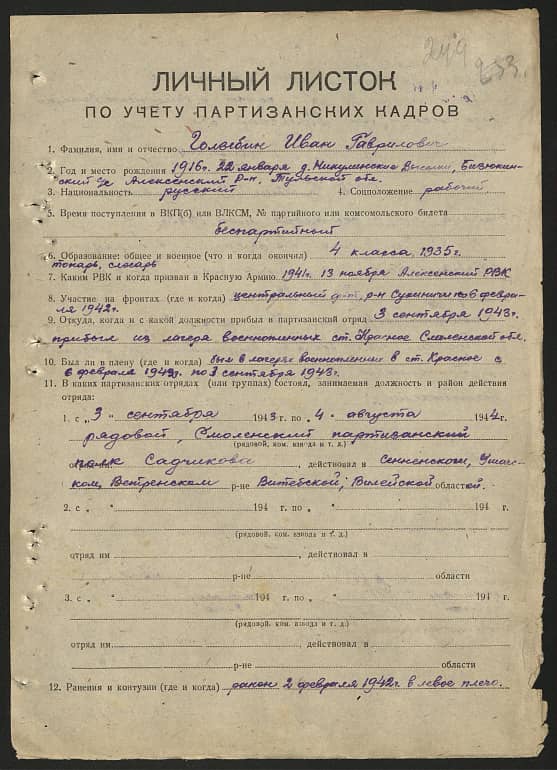 249
233.
ЛИЧНЫЙ ЛИСТОК
ПО УЧЕТУ ПАРТИЗАНСКИХ КАДРОВ
1. Фамилия, имя и отчество Голыбин Иван Гаврилович
2. Год и место рождения 1916г. 22 января д. Никулинские Выселки,
ский с/с Алексенский р-н, Тульской обл.
3. Национальность русский 4. Соцположение рабочий
5. Время поступления в ВКП(б) или ВЛКСМ, № партийного или комсомольского билета
беспартийный
6. Образование: общее и военное (что и когда окончил) 4 класса, 1935г.
токарь, слесарь
7. Каким РВК и когда призван в Красную Армию 1941г. 13 ноября Алексенский РВК
8. Участие на фронтах (где и когда) центральный р-н Сухиничи по 6 февра-
ля 1942г.
9. Откуда, когда и с какой должности прибыл в партизанский отряд 3 сентября 1943г.
прибыл из лагеря военнопленных ст. Красное Смоленской обл.
10. Был ли в плену (где и когда) был в лагере военнопленных в ст. Красное с
6 февраля по 3 сентября 1943г.
11. В каких партизанских отрядах (или группах) состоял, занимаемая должность и район действия
отряда:
1. с „3“ сентября 1943 г. по „4“ августа 1944г.
рядовой, Смоленский партизанский
(рядовой, ком. взвода и т. д.)
полк Садчикова, действовал в Сенненском, Ушач-
ком, Ветренском р-не Витебской, Вилейской областей.
2. с „ “ 194 г. по „ “ 194 г.
(рядовой, ком. взвода и т. д.)
отряд им действовал в
р-не области
3. с „ “ 194 г. по „ “ 194 г.
(рядовой, ком. взвода и т. д.)
отряд им , действовал в
р-не области
12. Ранения и контузии (где и когда) ранен 2 февраля 1942г. в левое плечо.